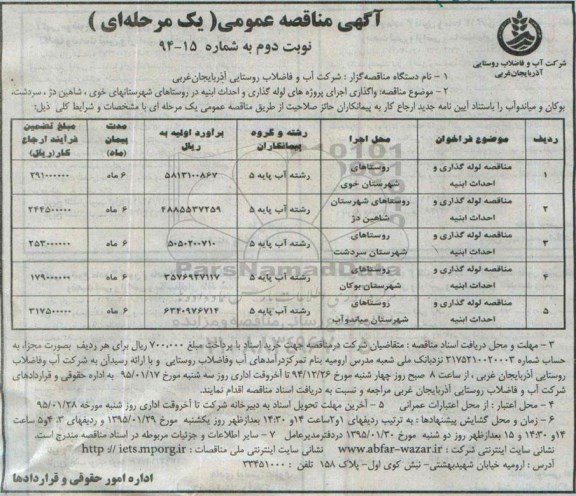 آگهی مناقصه عمومی( یک مرحله‌ای )
نوبت دوم به شماره ۱۵-۹۴
شرکت آب و فاضلاب روستایی
آذربایجان‌غربی
۱ - نام دستگاه مناقصه‌گزار : شرکت آب و فاضلاب روستایی آذربایجان‌غربی
۲ - موضوع مناقصه: واگذاری اجرای پروژه های لوله گذاری و احداث ابنیه در روستاهای شهرستانهای خوی ، شاهین دژ ، سردشت،
بوکان و میاندوآب را باستناد آیین نامه جدید ارجاع کار به پیمانکاران حائز صلاحیت از طریق مناقصه عمومی یک مرحله ای با مشخصات و شرایط کلی ذیل:
ردیف موضوع فراخوان محل اجرا رشته و گروه پیمانکاران برآورد اولیه به ریال مدت پیمان (ماه) مبلغ تضمین فرآیند ارجاع کار(ریال)
۱ مناقصه لوله گذاری و احداث ابنیه روستاهای شهرستان خوی رشته آب پایه ۵ ۵۸۱۳۱۰۰۸۶۷ ۶ ماه ۲۹۱۰۰۰۰۰۰
۲ مناقصه لوله گذاری و احداث ابنیه روستاهای شهرستان شاهین دژ رشته آب پایه ۵ ۴۸۸۵۵۳۷۲۵۹ ۶ ماه ۲۴۴۵۰۰۰۰۰
۳ مناقصه لوله گذاری و احداث ابنیه روستاهای شهرستان سردشت رشته آب پایه ۵ ۵۰۵۰۲۰۰۷۱۰ ۶ ماه ۲۵۳۰۰۰۰۰۰
۴ مناقصه لوله گذاری و احداث ابنیه روستاهای شهرستان بوکان رشته آب پایه ۵ ۳۵۷۶۹۳۷۱۱۷ ۶ ماه ۱۷۹۰۰۰۰۰۰
۵ مناقصه لوله گذاری و احداث ابنیه روستاهای شهرستان میاندوآب رشته آب پایه ۵ ۶۳۴۰۹۷۶۷۱۴ ۶ ماه ۳۱۷۵۰۰۰۰۰
۳ - مهلت و محل دریافت اسناد مناقصه : متقاضیان شرکت درمناقصه جهت خرید اسناد با پرداخت مبلغ ۷۰۰۰۰۰ ریال برای هر ردیف بصورت مجزا، به
حساب شماره ۲۱۷۵۲۱۰۰۲۰۰۰۳ نزدبانک ملی شعبه مدرس ارومیه بنام تمرکزدرآمدهای آب وفاضلاب روستایی و با ارائه رسیدآن به شرکت آب وفاضلاب
روستایی آذربایجان غربی ، از ساعت ۸ صبح روز چهار شنبه مورخ ۹۴/۱۲/۲۶ تا آخروقت اداری روز سه شنبه مورخ ۹۵/۰۱/۱۷ به اداره حقوقی و قراردادهای
شرکت آب و فاضلاب روستایی آذربایجان غربی مراجعه و نسبت به دریافت اسناد مناقصه اقدام نمایند.
۴ - محل اعتبار : از محل اعتبارات عمرانی ۵ - آخرین مهلت تحویل اسناد به دبیرخانه شرکت تا آخروقت اداری روز شنبه مورخه ۹۵/۰۱/۲۸
۶ - زمان و محل گشایش پیشنهادها : به ترتیب ردیفهای ۱و۲ساعت ۱۴و ۱۴:۳۰ بعدازظهر روز یکشنبه مورخ ۱۳۹۵/۰۱/۲۹ و ردیفهای ۳، ۴و۵ ساعت
۱۴و ۱۴:۳۰ و ۱۵ بعدازظهر روز دو شنبه مورخ ۱۳۹۵/۰۱/۳۰ دردفترمدیرعامل ۷ - سایر اطلاعات و جزئیات مربوطه در اسناد مناقصه مندرج است.
نشانی سایت اینترنتی شرکت : www.abfar-wazar.ir نشانی سایت اینترنتی ملی مناقصات : http :// iets.mporg.ir
آدرس : ارومیه خیابان شهیدبهشتی- نبش کوی اول- پلاک ۱۵۸ تلفن : ۳۳۴۵۱۰۰۰
اداره امور حقوقی و قراردادها